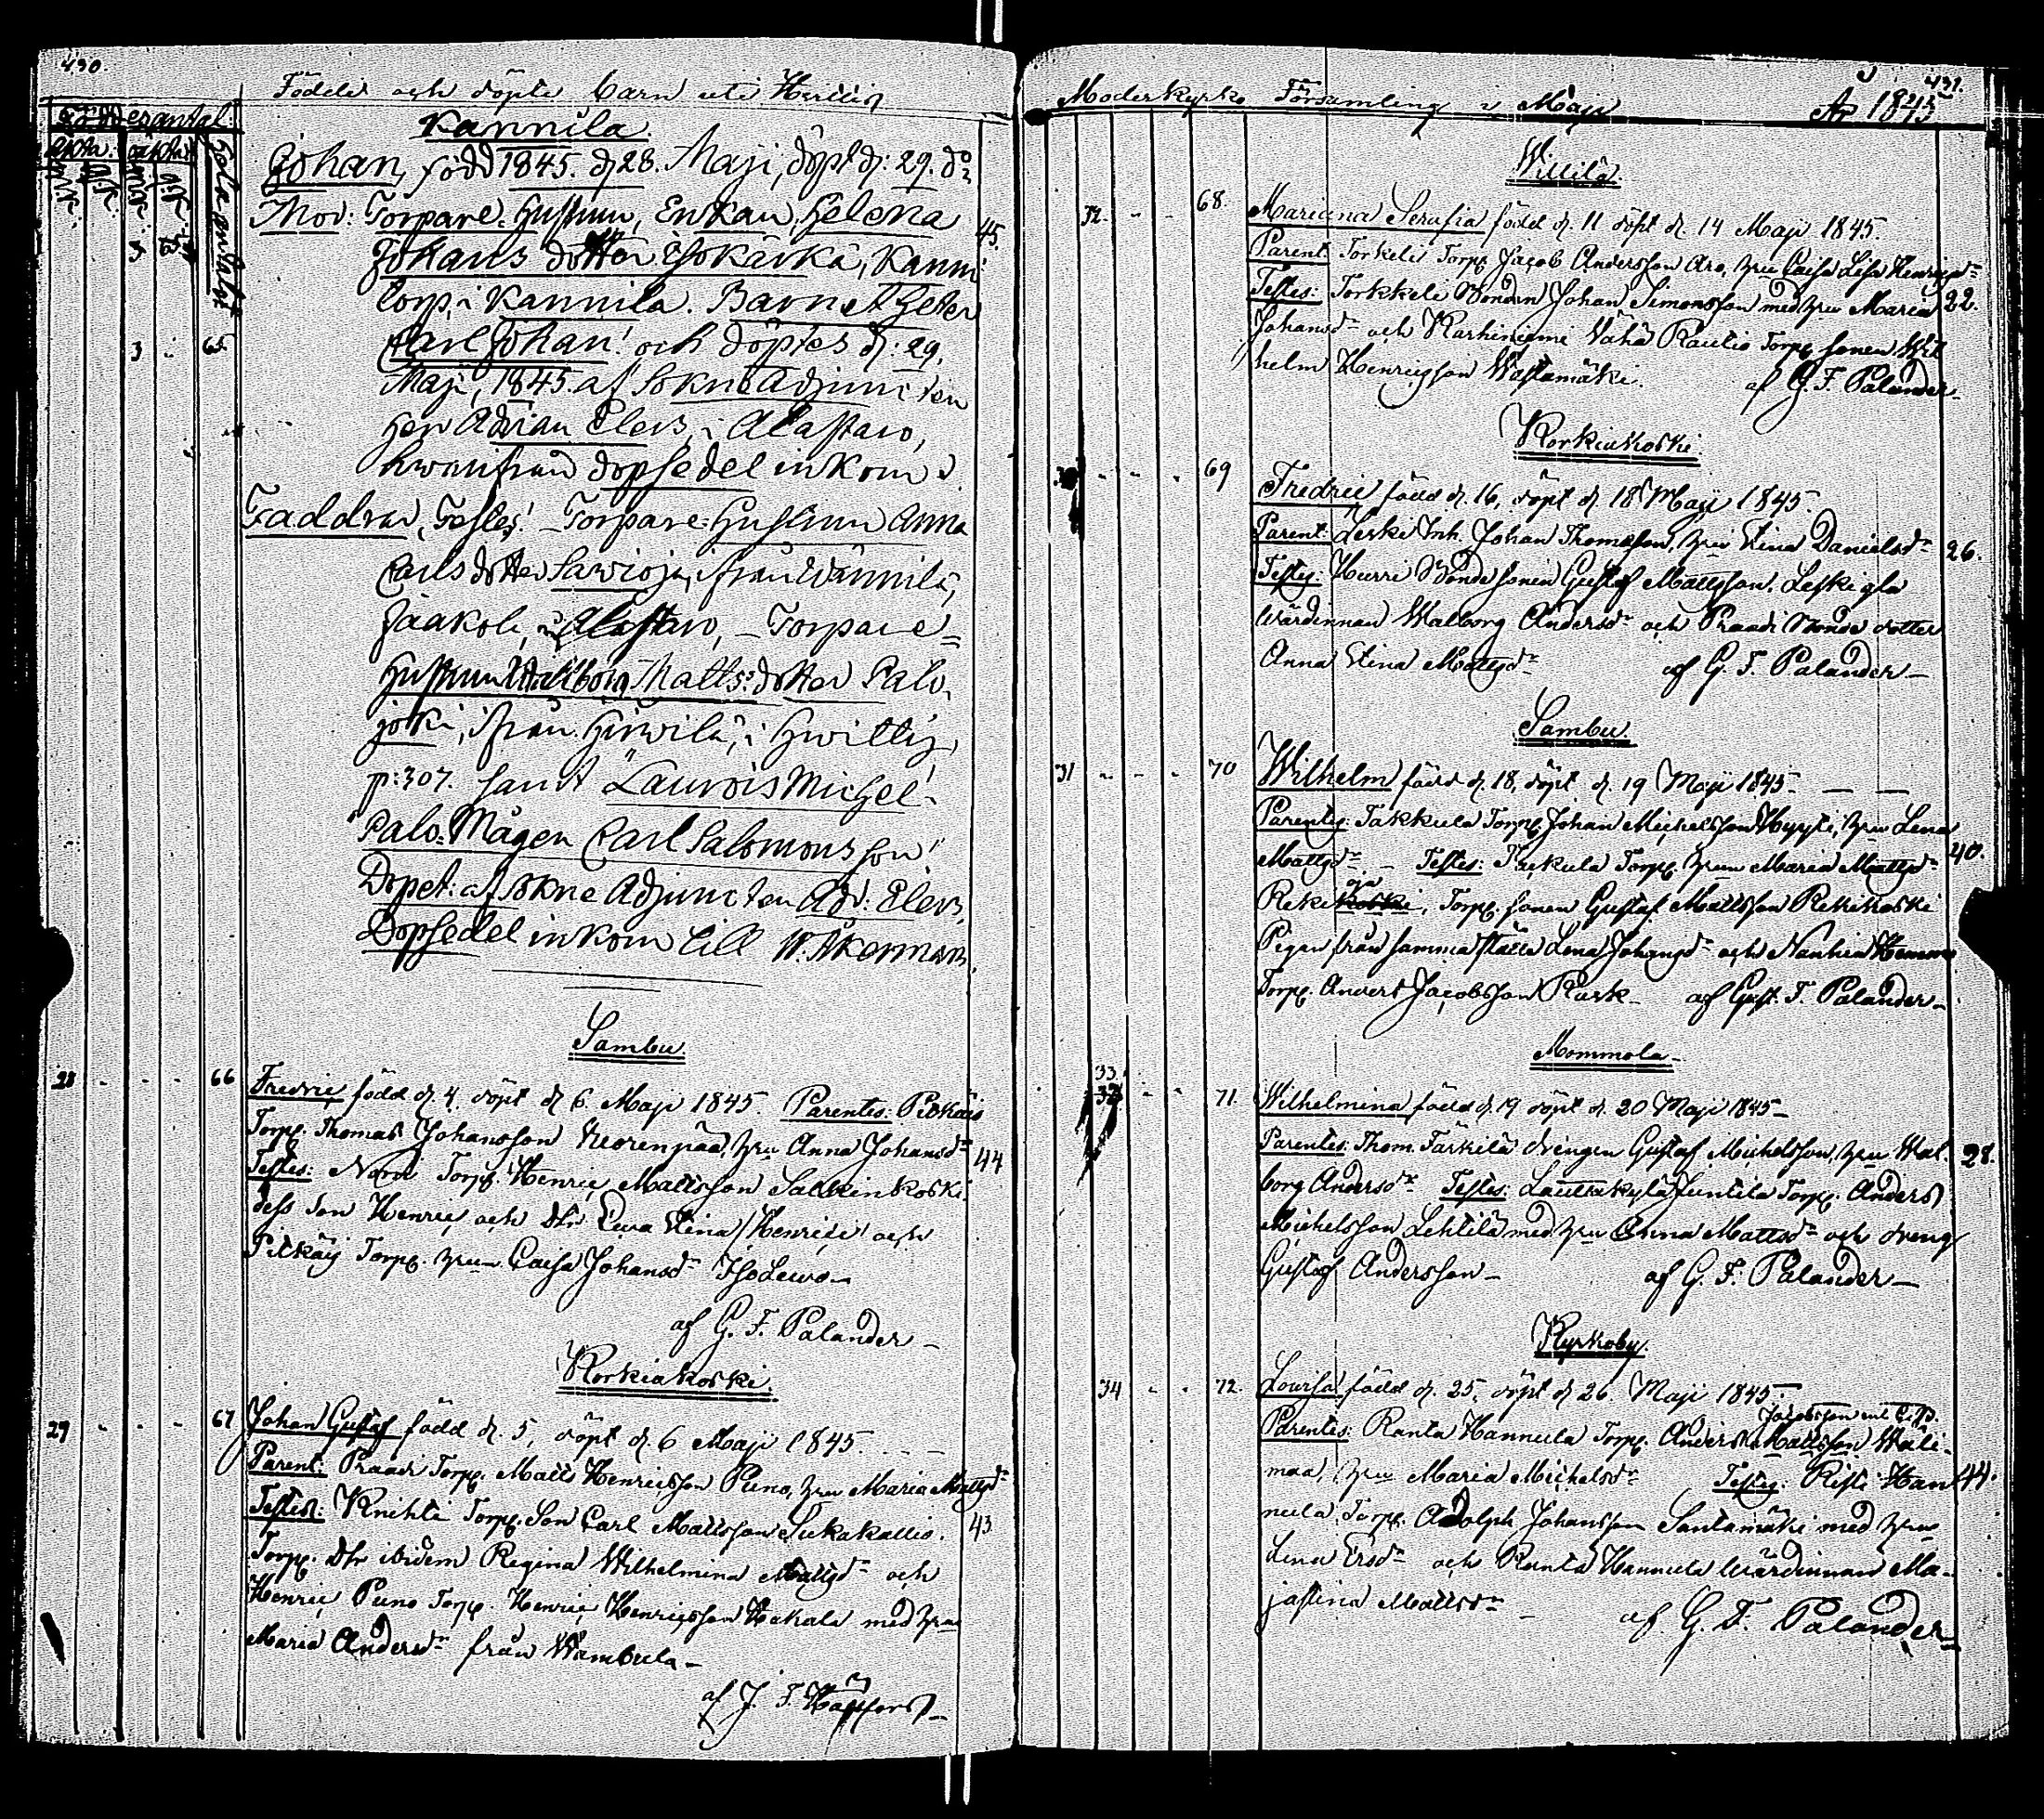 430.
Födde och döpte barn uti
Kannila.
Johan, född 1845. d. 28. Maji, döpt d: 29. do
Mor: Torpare: Hustrun, Enkan, Helena 45.
Johans dotter Isokärkä, Kanni
torp, i Kannila. Barnet heter
3 - 65. Carl Johan! och döptes d: 29.
Maji, 1845. af Sokne Adjuncten
Herr Adrian Elers, i Alastaro,
hwarifrån dopsedel inkom
Faddrar, Testes! Torpare: Hustrun Anna
Carls dotter Sawioja, ifrån Wännilä,
Jaakola, Alastaro, Torpare-
Hustrun Walborg Matts: dotter Palo,
joki, ifrån Hirwilä, i Hwittis,
p: 307. samt Lauroismichel
Palo: Mågen Carl Salomons son!
Döpet: af Sokne Adjuncten Adr: Elers.
Dopsedel inkom till W: Åkerman.
Sambu.
28 - - - 66 Fredric född d. 4 döpt d. 6. Maji 1845. Parentes: Pitkäis
Torp. Thomas Johansson hru Anna Johansdr 44
Testes: Norri Torp. Henric Mattsson Sallinkoski
dess son Henric och dtr Ewa Stina Henrics och
Pitkäis Torp. hru Caisa Johansdr
af G. F. Palander
Korkiakoski.
29 - - - 67 Johan Gustaf född d. 5, döpt d. 6 Maji 1845.
Parent: Praadi Torp. Matts Henricsson Puno, hru Maria Mattsdr
Testes: Knihti Torp. Son Carl Mattsson Sukakallio. 43
Torp. dtr ibidem Regina Wilhelmina Mattsdr och
Henric Puno Torp. Henric Henricsson Hakala med hru
Maria Andersdr från Wambula
af J. F.
431.
Moderkyrko Församling i Maji År 1845
Willilä.
32 - - 68. Mariana Serafia född d. 11 döpt d. 14 Maji 1845.
Parent: Torkeli Torp. Jacob Andersson Aro, hru Caisa Lisa Henricsdr
Testes: Torkkeli Bonden Johan Simonsson med hru Maria 22.
Johansdr och Karhiniemi Vähä Rautio Torp. sonen Wil
helm Henricsson Wastamäki. af G. F. Palander
Korkiakoski.
- - - 69 Fredric född d. 16, döpt d. 18 Maji 1845.
Parent: Leski Inh. Johan Thomasson, hru Stina Danielsdr 26.
Testes: Hurri Bondesonen Gustaf Mattsson. Leski gla
Wärdinnan Walborg Andersdr och Praadi Bonde dotter
Anna Stina Mattsdr af G. F. Palander
Sambu.
31 - - - 70 Wilhelm född d. 18, döpt d. 19 Maji 1845.
Parentes: Takkula Torp. Johan Michelsson Hyyti, hru Lena
Mattsdr Testes: Torp. hrun Maria Mattsdr 40.
Reki oja, Torp. sonen Gustaf Mattsson Rekikoski
Pigan från samma ställe Lena Johansdr och
Torp. Anders Jacobsson Rusk af Gust. F. Palander
Mommola
33. - - 71. Wilhelmina född d. 19 döpt d. 20 Maji 1845
Parentes: Thom. Tärkilä drengen Gustaf Michelsson, hru Wal- 28.
borg Andersdr Testes: Lauttakylä Juntila Torp. Anders
Michelsson Lehtilä med hru Anna Mattsdr och dreng
Gustaf Andersson af G. F. Palander
Kyrkoby.
34 - - 72. Lovisa född d. 25, döpt d. 26. Maji 1845.
Jacobsson
Parentes: Ranta Hannula Torp. Anders Mattsson Wali-
maa, hru Maria Michelsdr Testes: Risti Han 44.
nula Torp. Adolph Johansson Santamäki med hru
Lena Ersdr och Ranta Hannula Wärdinnan Ma-
jastina Mattsdr af G. F. Palander